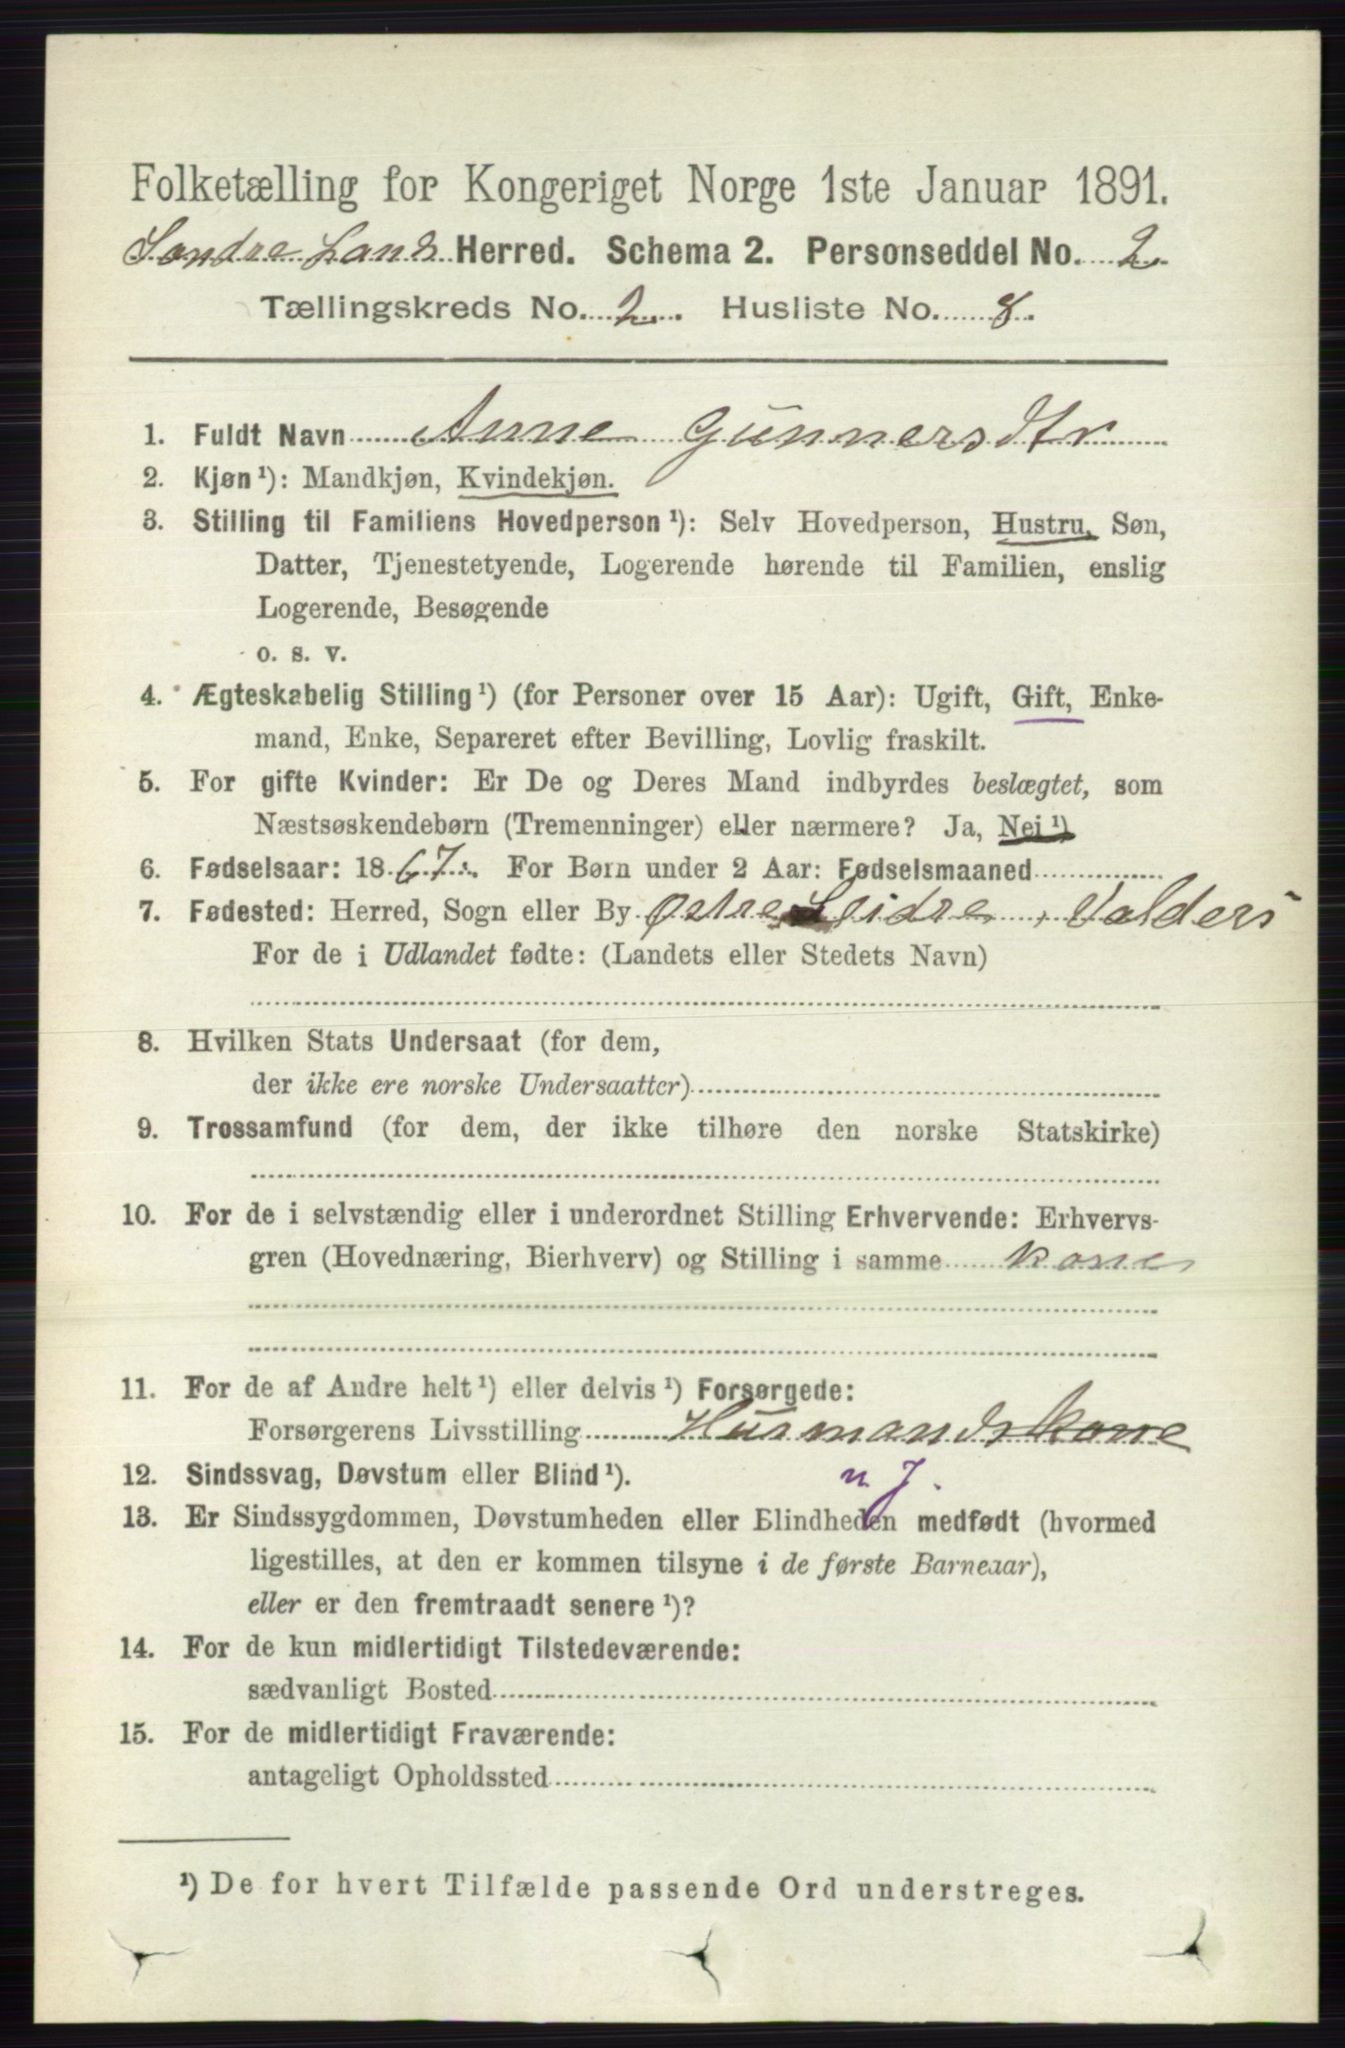 Folketælling for Kongeriget Norge 1ste Januar 1891.
Søndre Land Herred. Schema 2. Personseddel No. 2
Tællingskreds No. 2. Husliste No. 8.
1. Fuldt Navn Anne Gunnersdtr
2. Kjøn¹): Mandkjøn, Kvindekjøn.
3. Stilling til Familiens Hovedperson¹): Selv Hovedperson, Hustru, Søn,
Datter, Tjenestetyende, Logerende hørende til Familien, enslig
Logerende, Besøgende
o. s. v.
4. Ægteskabelig Stilling¹) (for Personer over 15 Aar): Ugift, Gift, Enke-
mand, Enke, Separeret efter Bevilling, Lovlig fraskilt.
5. For gifte Kvinder: Er De og Deres Mand indbyrdes beslægtet, som
Næstsøskendebørn (Tremenninger) eller nærmere? Ja, Nei¹)
6. Fødselsaar: 1867. For Børn under 2 Aar: Fødselsmaaned
7. Fødested: Herred, Sogn eller By Østre Slidre, Valders
For de i Udlandet fødte: (Landets eller Stedets Navn)
8. Hvilken Stats Undersaat (for dem,
der ikke ere norske Undersaatter)
9. Trossamfund (for dem, der ikke tilhøre den norske Statskirke)
10. For de i selvstændig eller i underordnet Stilling Erhvervende: Erhvervs-
gren (Hovednæring, Bierhverv) og Stilling i samme kone
11. For de af Andre helt¹) eller delvis¹) Forsørgede:
Forsørgerens Livsstilling Husmandskone
12. Sindssvag, Døvstum eller Blind¹). m. J.
13. Er Sindssygdommen, Døvstumheden eller Blindheden medfødt (hvormed
ligestilles, at den er kommen tilsyne i de første Barneaar),
eller er den fremtraadt senere¹)?
14. For de kun midlertidigt Tilstedeværende:
sædvanligt Bosted
15. For de midlertidigt Fraværende:
antageligt Opholdssted
¹) De for hvert Tilfælde passende Ord understreges.